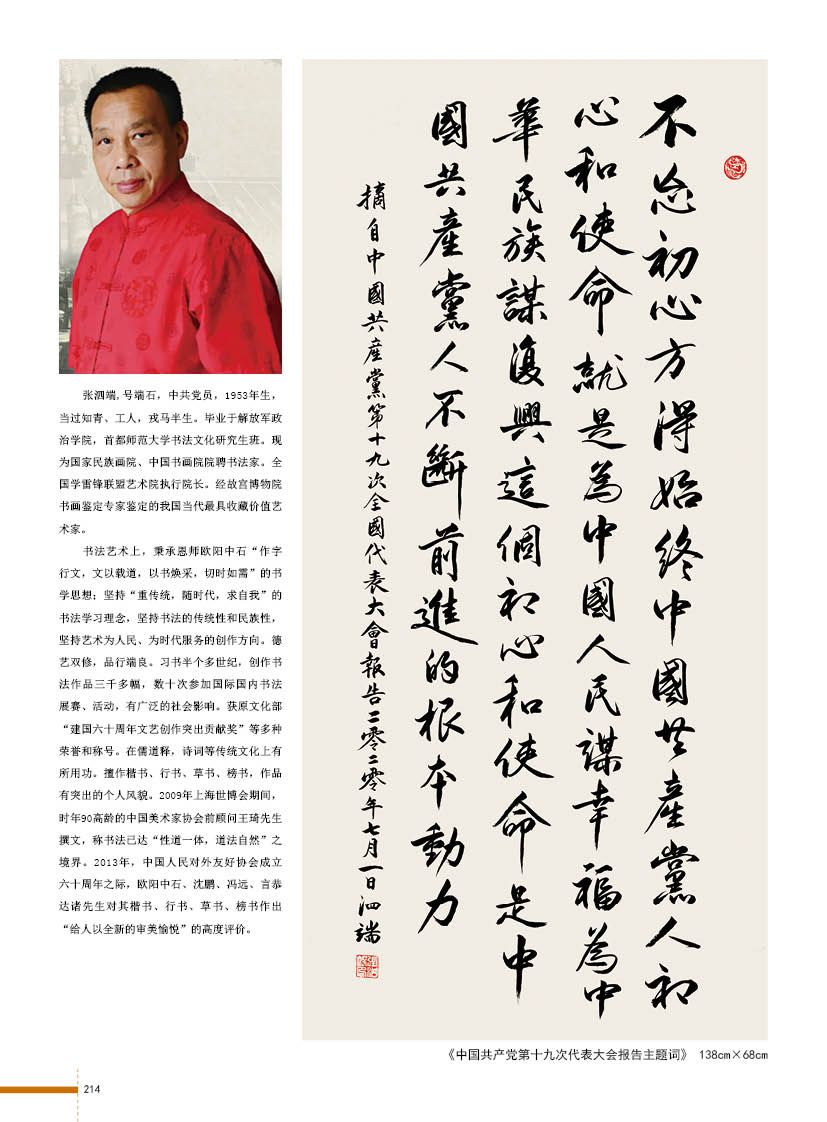 张泗端,号端石，中共党员，1953年生，
当过知青、工人，戎马半生。毕业于解放军政
治学院，首都师范大学书法文化研究生班。现
为国家民族画院、中国书画院院聘书法家。全
国学雷锋联盟艺术院执行院长。经故宫博物院
书画鉴定专家鉴定的我国当代最具收藏价值艺
术家。
书法艺术上，秉承恩师欧阳中石“作字
行文，文以载道，以书焕采，切时如需”的书
学思想；坚持“重传统，随时代，求自我”的
书法学习理念，坚持书法的传统性和民族性，
坚持艺术为人民、为时代服务的创作方向。德
艺双修，品行端良。习书半个多世纪，创作书
法作品三千多幅，数十次参加国际国内书法
展赛、活动，有广泛的社会影响。获原文化部
“建国六十周年文艺创作突出贡献奖”等多种
荣誉和称号。在儒道释，诗词等传统文化上有
所用功。擅作楷书、行书、草书、榜书，作品
有突出的个人风貌。2009年上海世博会期间，
时年90高龄的中国美术家协会前顾问王琦先生
撰文，称书法已达“性道一体，道法自然”之
境界。2013年，中国人民对外友好协会成立
六十周年之际，欧阳中石、沈鹏、冯远、言恭
达诸先生对其楷书、行书、草书、榜书作出
“给人以全新的审美愉悦”的高度评价。
不忘初心方得始终中國共產黨人初
心和使命就是為中國人民謀幸福為中
華民族謀復興這個初心和使命是中
國共產黨人不斷前進的根本動力
摘自中國共産黨第十九次全國代表大會報告二零二零年七月一日泗端
《中国共产党第十九次代表大会报告主题词》 138cm×68cm
214